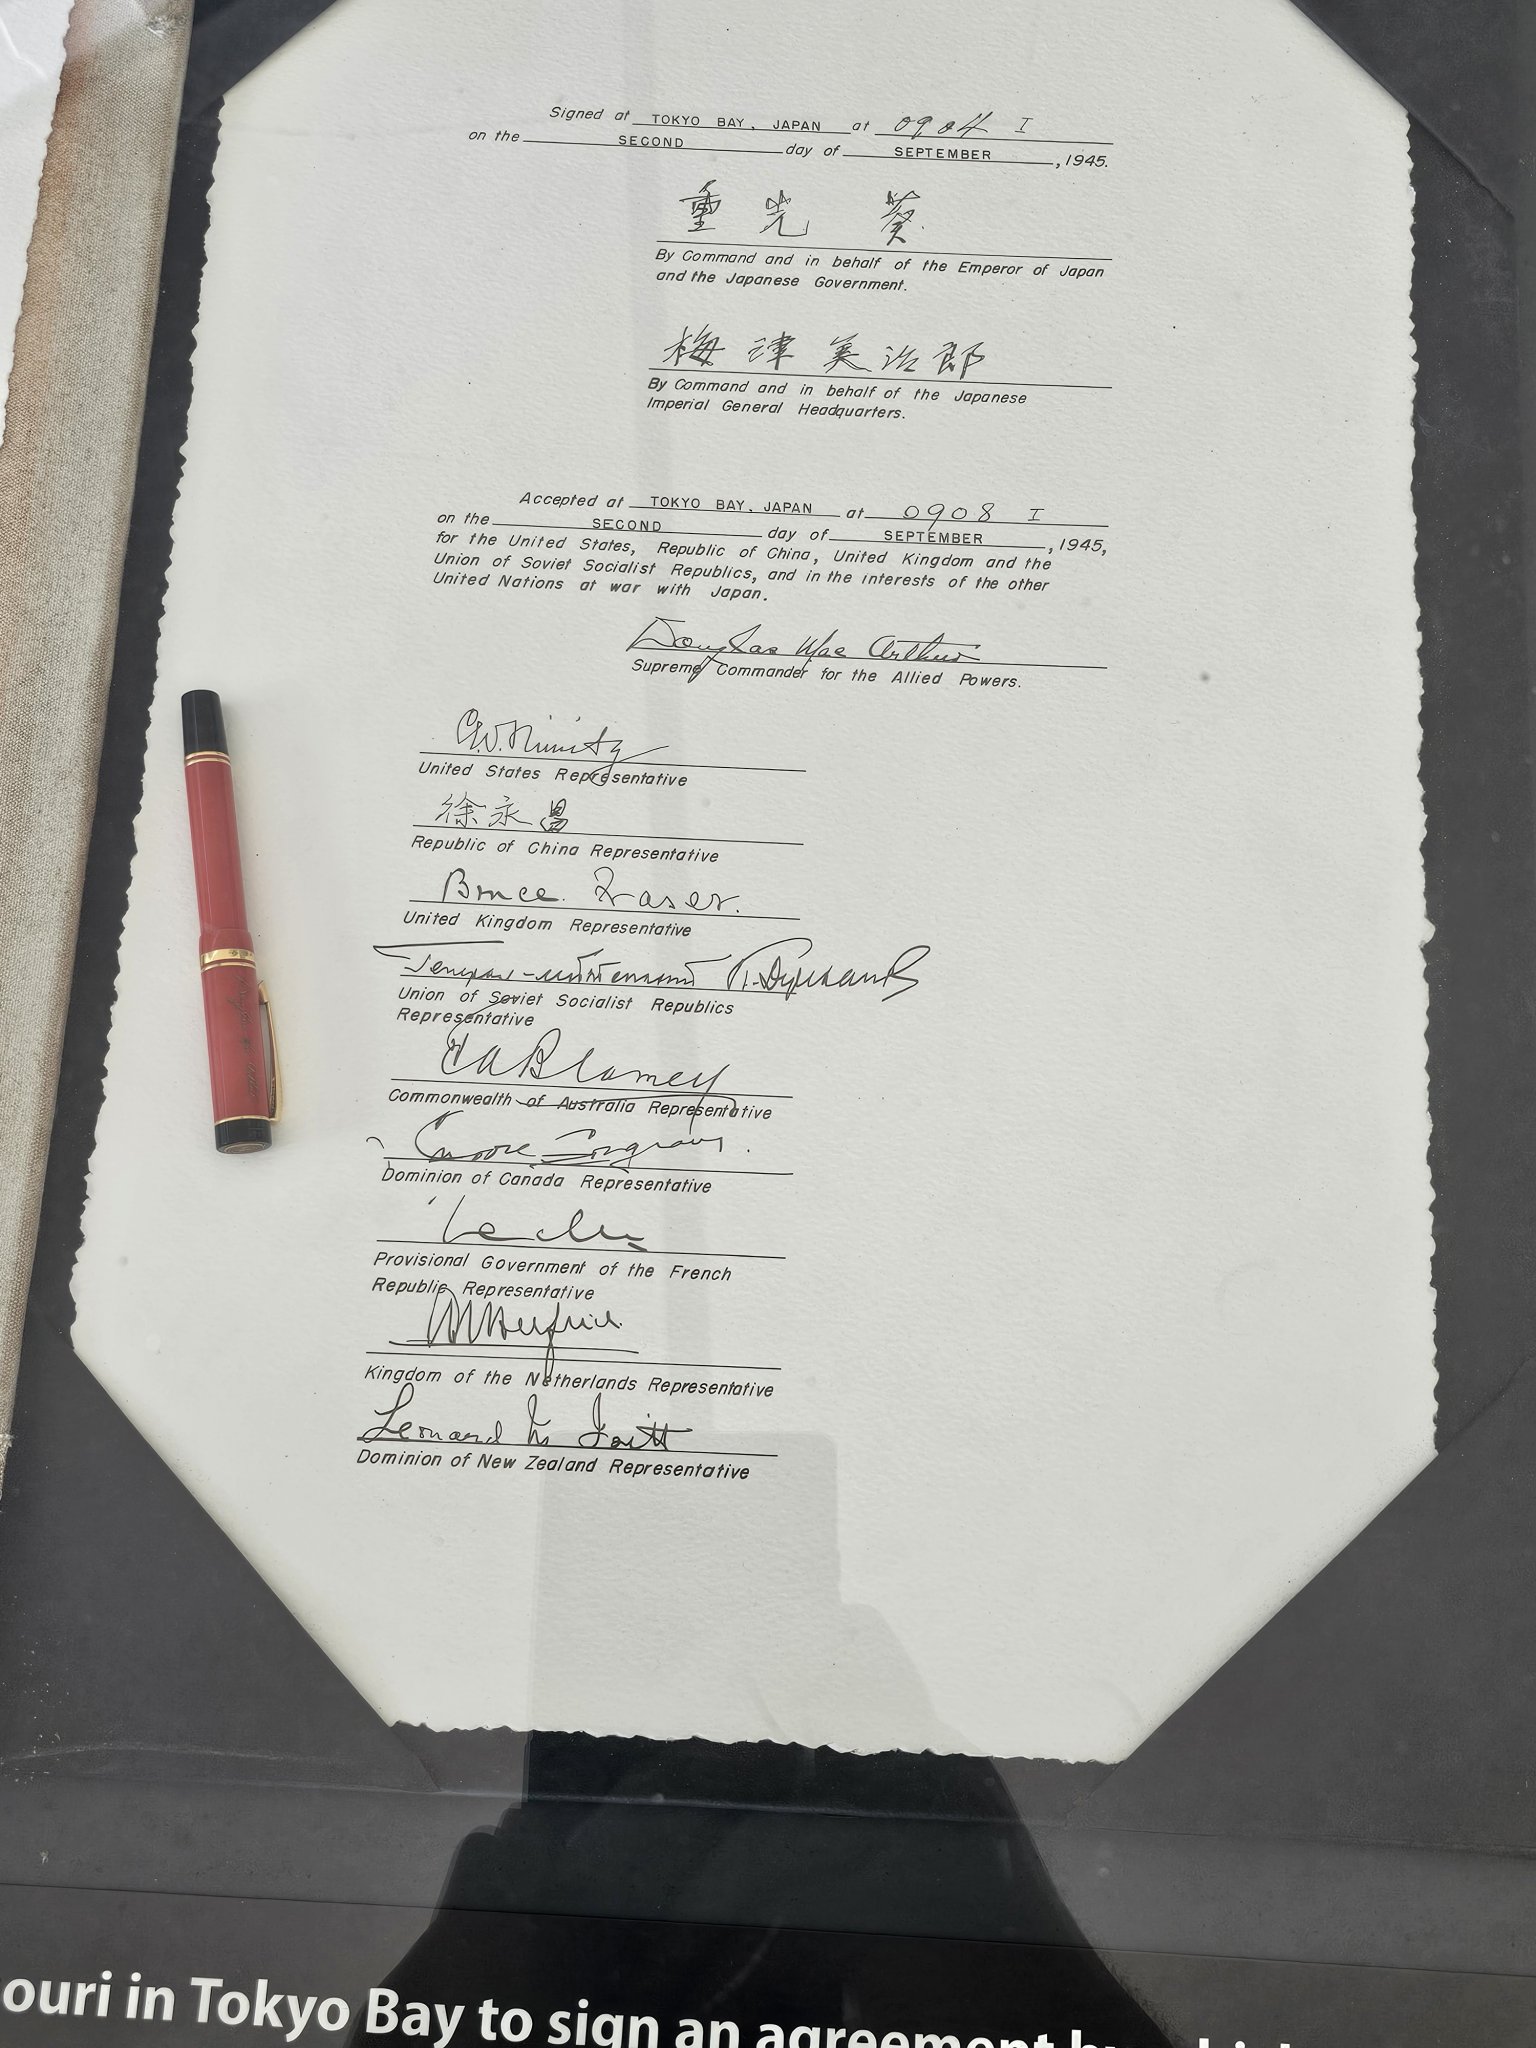 Signed at TOKYO BAY, JAPAN at 0904 I
on the SECOND day of SEPTEMBER, 1945.
重光 葵
By Command and in behalf of the Emperor of Japan
and the Japanese Government.
梅津美治郎
By Command and in behalf of the Japanese
Imperial General Headquarters.
Accepted at TOKYO BAY, JAPAN at 0908 I
on the SECOND day of SEPTEMBER, 1945,
for the United States, Republic of China, United Kingdom and the
Union of Soviet Socialist Republics, and in the interests of the other
United Nations at war with Japan.
Douglas MacArthur
Supreme Commander for the Allied Powers.
C.W. Nimitz
United States Representative
徐永昌
Republic of China Representative
Bruce Fraser.
United Kingdom Representative
Генерал-лейтенант
Union of Soviet Socialist Republics
Representative
T A Blamey
Commonwealth of Australia Representative
Dominion of Canada Representative
Provisional Government of the French
Republic Representative
Kingdom of the Netherlands Representative
Leonard M Isitt
Dominion of New Zealand Representative
ouri in Tokyo Bay to sign an agreement